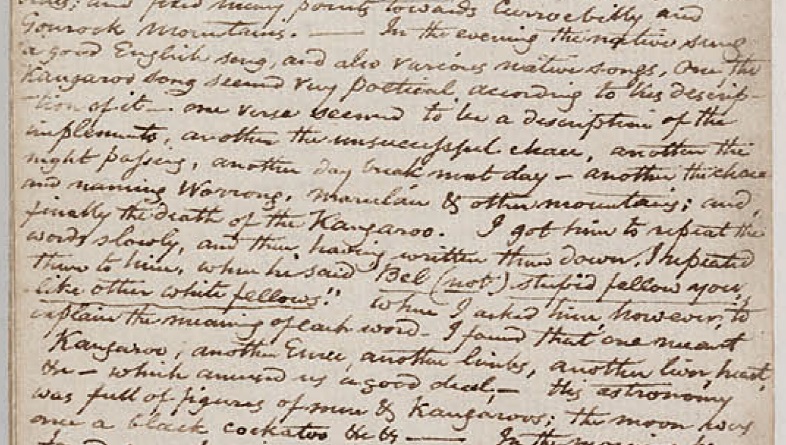 and fixed many points towards Currocbilly and
Gourock mountains. — In the evening the native sung
a good English song, and also various native songs, One, the
Kangaroo song seemed very poetical according to his descrip-
-tion of it — one verse seemed to be a description of the
implements, another the unsuccessful chace, another the
night passing, another day break next day — another the chace
and naming Warrong, marulan & other mountains; and
finally the death of the Kangaroo. I got him to repeat the
words slowly, and then having written them down, I repeated
them to him, when he said "Bel (not) stupid fellow you,
like other white fellows!" When I asked him, however, to
explain the meaning of each word — I found that one meant
Kangaroo, another Emu, another limbs, another liver, heart,
&c — which amused us a good deal, — his astronomy
was full of figures of men & Kangaroos; the moon was
once a black cockatoo &c &c — In the